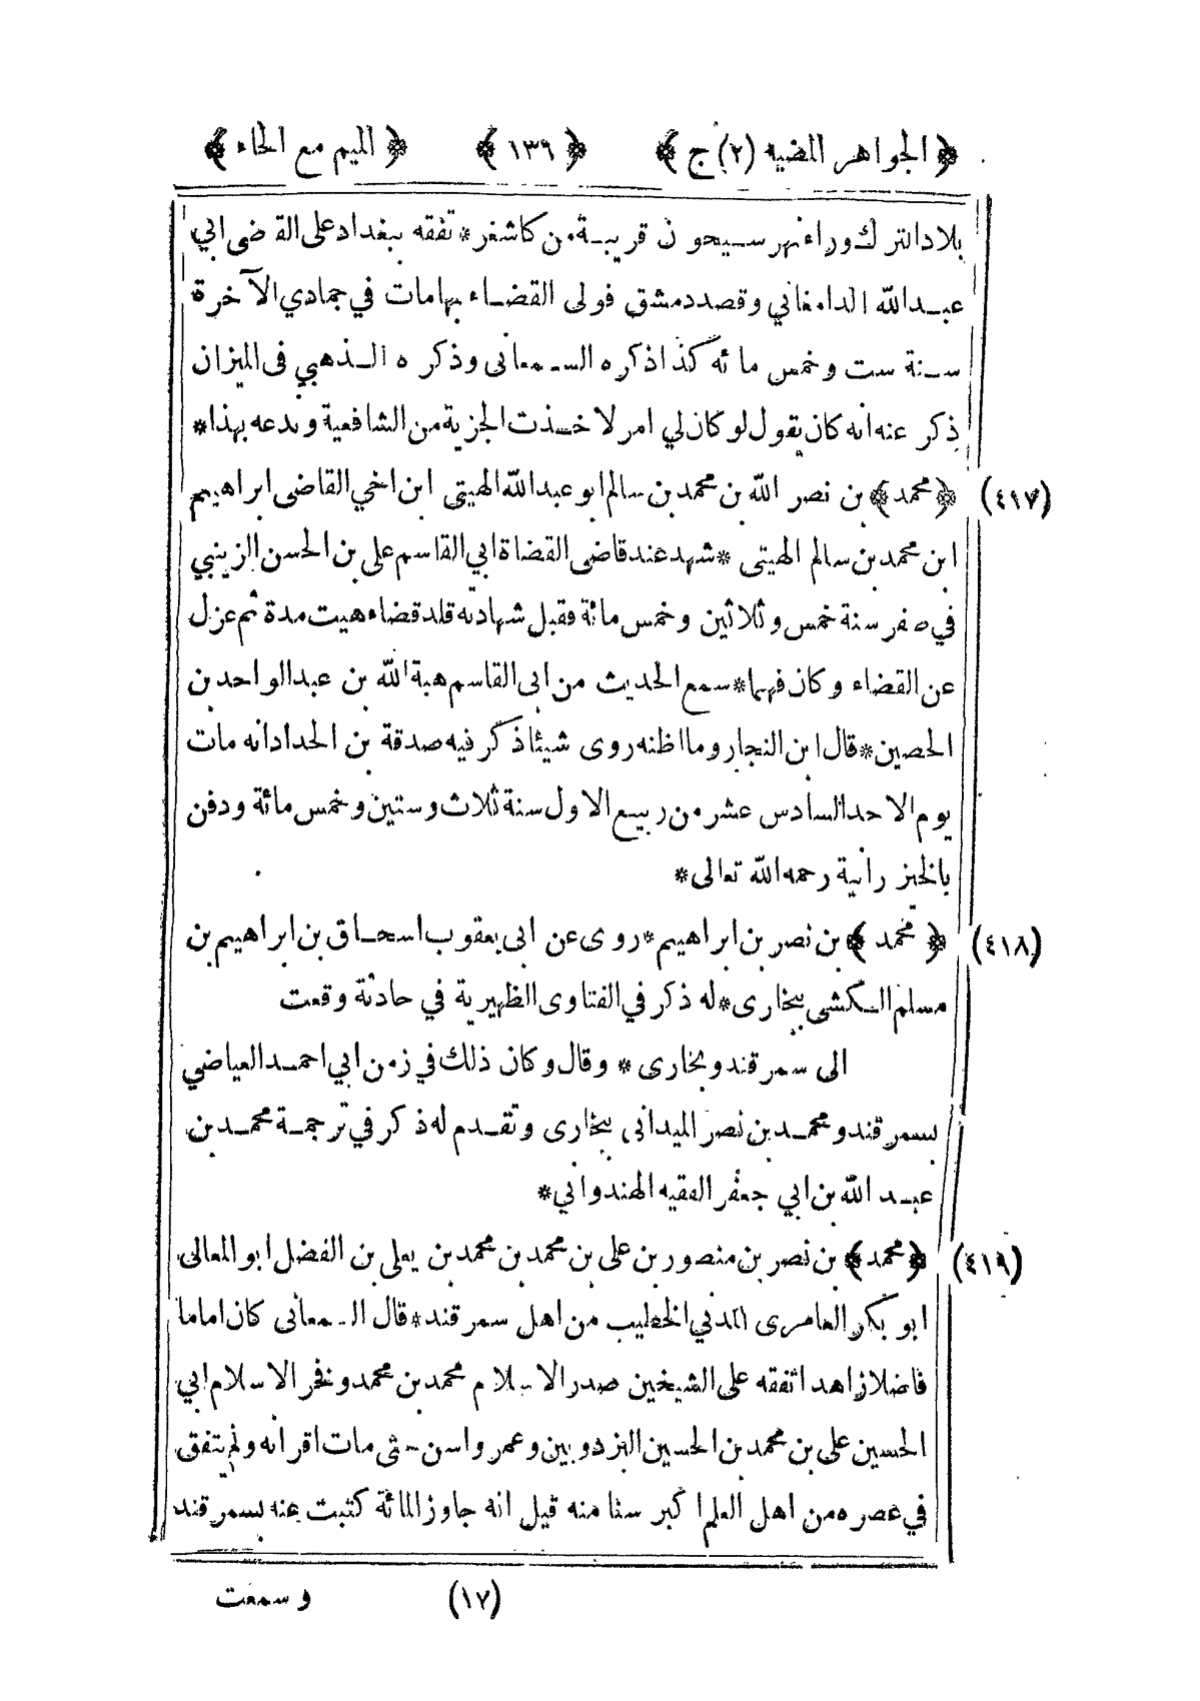 ﴿ الجواهر المضيه (٢) ج ﴾ ﴿ ١٣٦ ﴾ ﴿ الميم مع الحاء ﴾
بلاد الترك وراء نهر سيحون قريبة من كاشغر * تفقه ببغداد على القاضى ابي
عبد الله الدامغاني وقصد دمشق فولى القضاء بها مات في جمادي الآخرة
سنة ست وخمس مائه كذا ذكره السمعانى وذكره الذهبي فى الميزان
ذكر عنه انه كان يقول لو كان لي امر لاخذت الجزية من الشافعية وبدعه بهذا *
(٤١٧) ﴿ محمد ﴾ بن نصر الله بن محمد بن سالم ابو عبد الله الهيتى ابن اخي القاضى ابراهيم
ابن محمد بن سالم الهيتى * شهد عند قاضى القضاة ابي القاسم على بن الحسن الزينبي
في صفر سنة خمس وثلاثين وخمس مائة فقبل شهادته قلد قضاء هيت مدة ثم عزل
عن القضاء وكان فهما * سمع الحديث من ابى القاسم هبة الله بن عبد الواحد بن
الحصين * قال ابن النجار وما اظنه روى شيئا ذكر فيه صدقة بن الحداد انه مات
يوم الاحد السادس عشر من ربيع الاول سنة ثلاث وستين وخمس مائة ودفن
بالخيزرانية رحمه الله تعالى *
(٤١٨) ﴿ محمد ﴾ بن نصر بن ابراهيم * روى عن ابى يعقوب اسحاق بن ابراهيم بن
مسلم الكشى ببخارى * له ذكر في الفتاوى الظهيرية في حادثة وقعت
الى سمرقند وبخارى * وقال وكان ذلك في زمن ابي احمد العياضي
بسمرقند ومحمد بن نصر الميدانى ببخارى وتقدم له ذكر في ترجمة محمد بن
عبد الله بن ابي جعفر الفقيه الهندواني *
(٤١٩) ﴿ محمد ﴾ بن نصر بن منصور بن على بن محمد بن محمد بن يعلى بن الفضل ابو المعالى
ابو بكر العامرى المدني الخطيب من اهل سمرقند * قال السمعانى كان اماما
فاضلا زاهدا تفقه على الشيخين صدر الاسلام محمد بن محمد وفخر الاسلام ابي
الحسين على بن محمد بن الحسين البزدوبين وعمر واسن حتى مات اقرانه ولم يتفق
في عصره من اهل العلم اكبر سنا منه قيل انه جاوز المائة كتبت عنه بسمرقند
(١٧) وسمعت